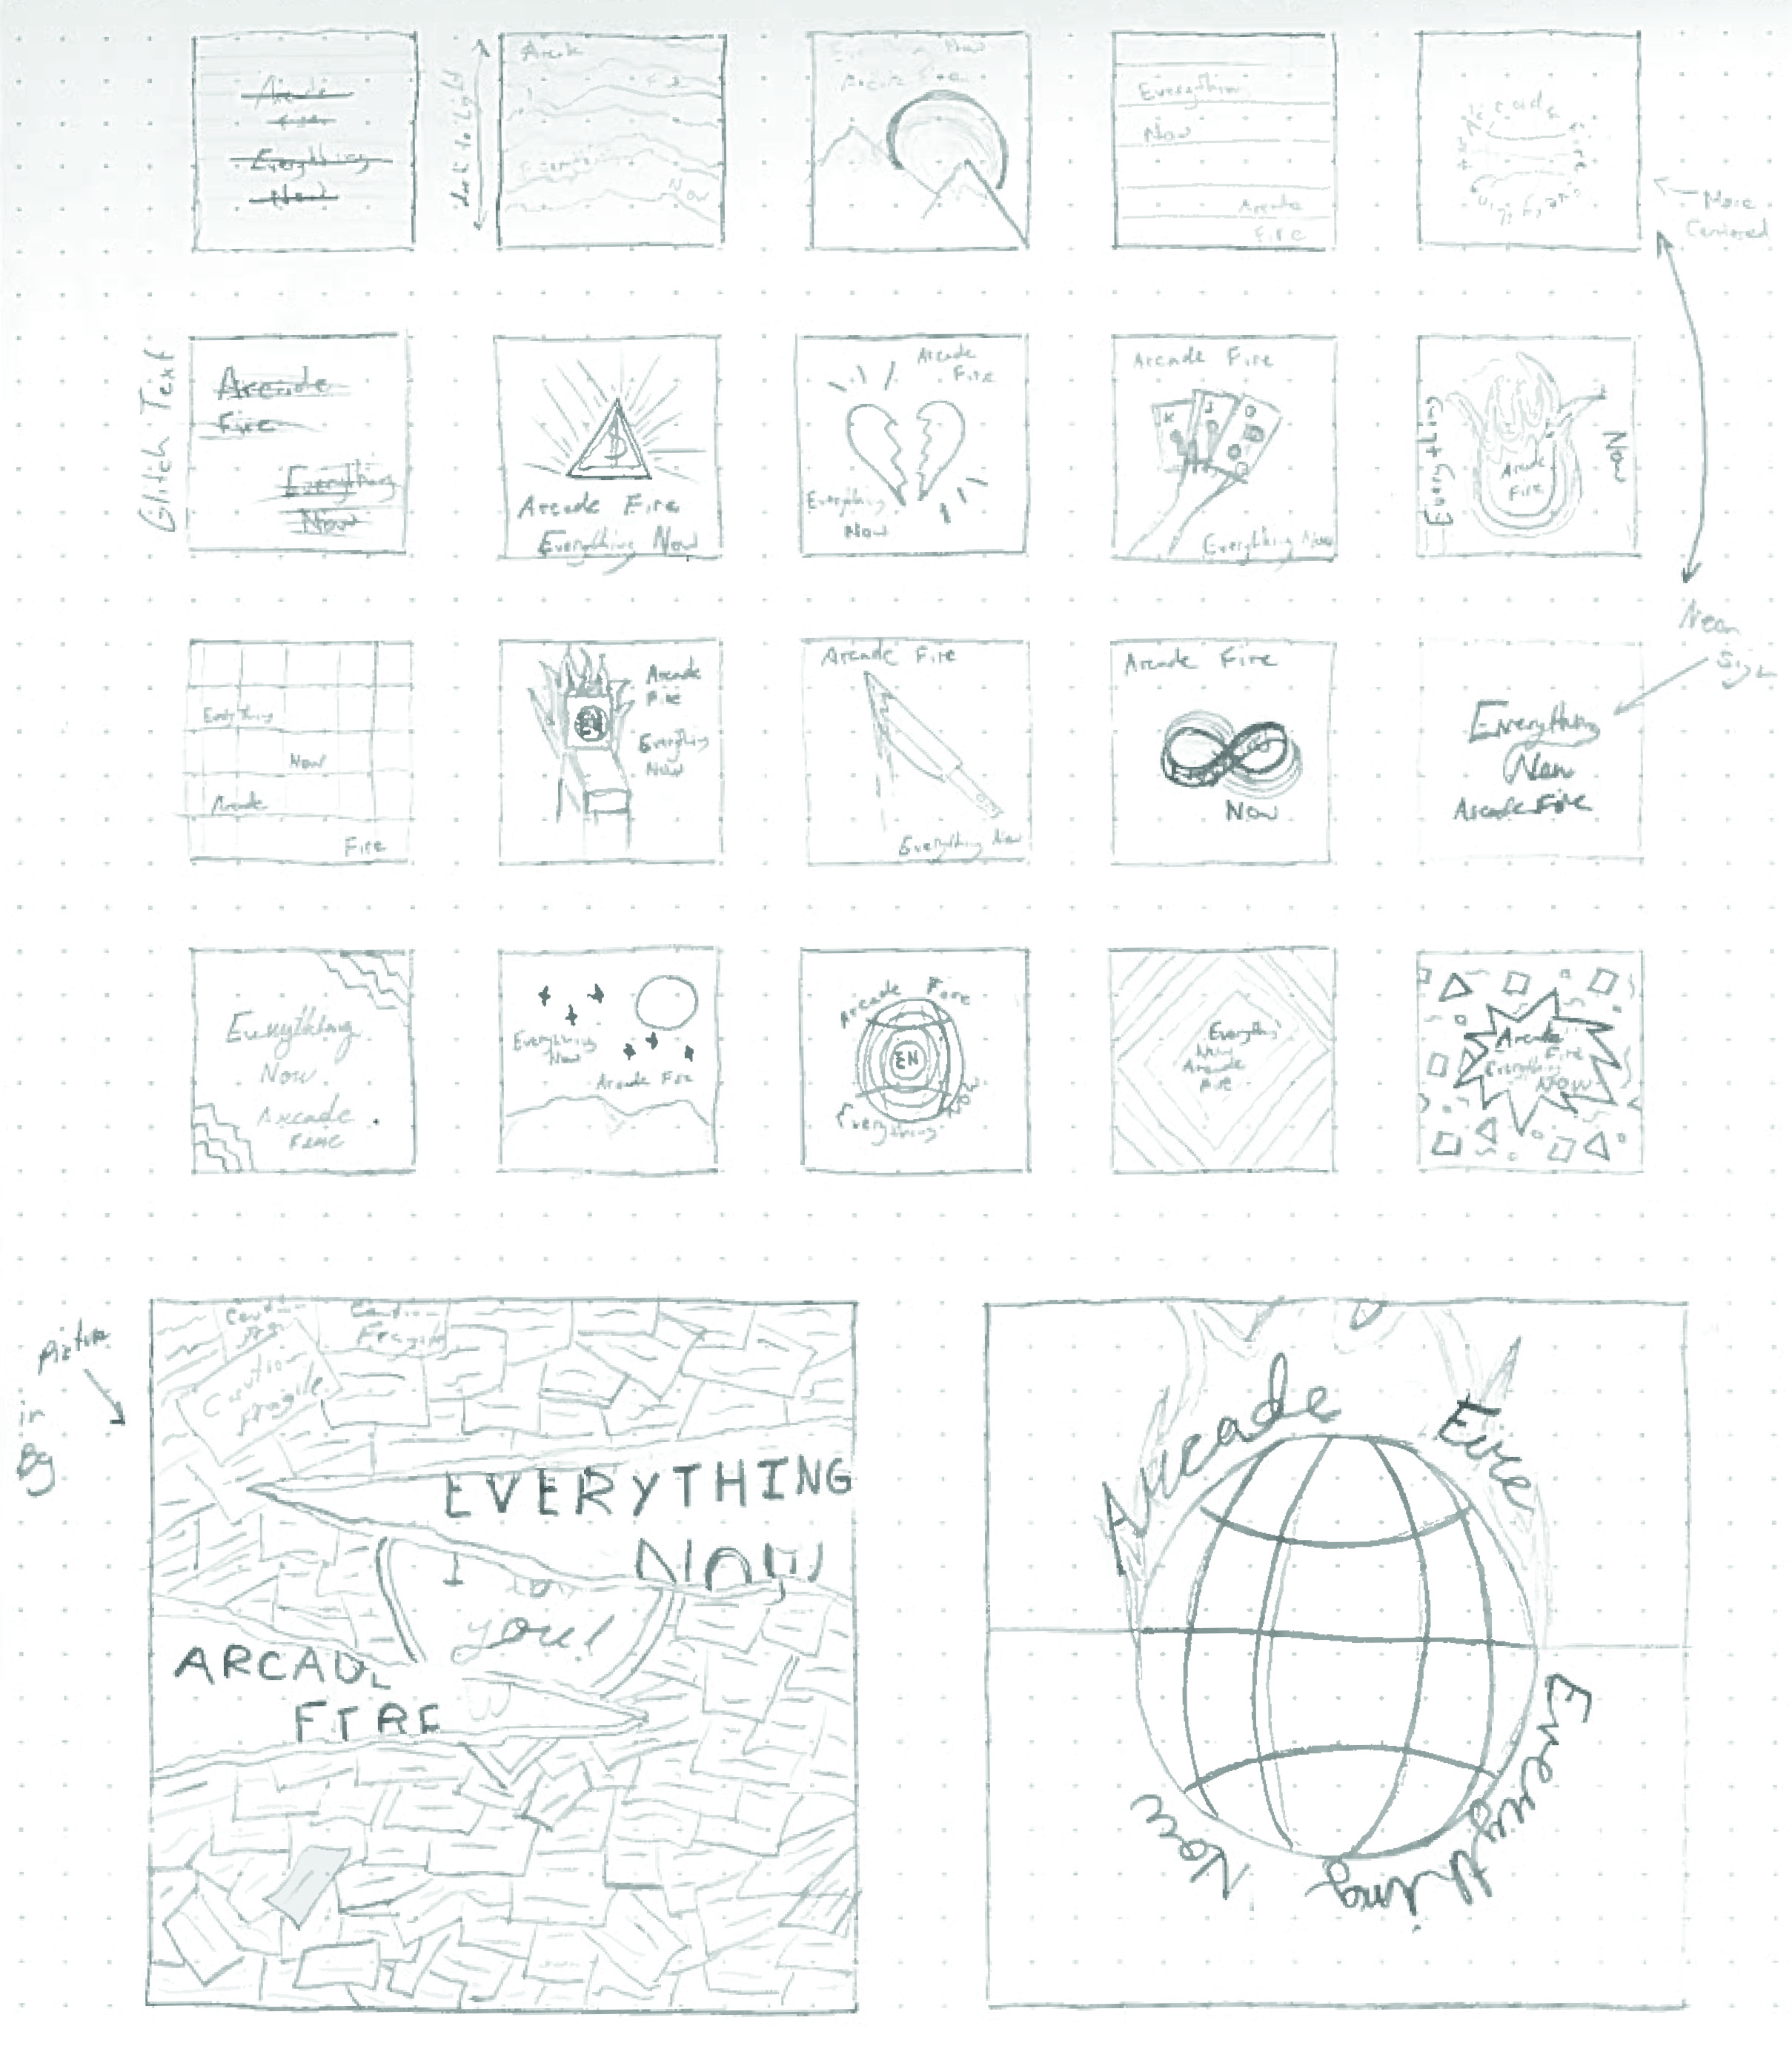 Arcade
Fire
Everything
Now
Dark to Light
Arcade
Now
Now
Everything
Now
Arcade
Fire
Arcade
More
Centered
Glitch Text
Arcade
Fire
Everything
Now
$
Arcade Fire
Everything Now
Arcade
Fire
Everything
Now
Arcade Fire
K
J
Everything Now
Everything
Arcade
Fire
Now
Neon
Sign
Everything
Now
Arcade
Fire
EN
Arcade
Fire
Everything
Now
Arcade Fire
Everything Now
Arcade Fire
Now
Everything
Now
Arcade Fire
Everything
Now
Arcade
Fire
Everything
Now
Arcade Fire
Arcade Fire
EN
Everything
Now
Everything
Now
Arcade
Fire
Arcade
Fire
Everything
Now
in
Bg
Caution
Fragile
Caution
Fragile
EVERYTHING
NOW
I
you!
ARCADE
FIRE
Arcade
Fire
Everything
Now